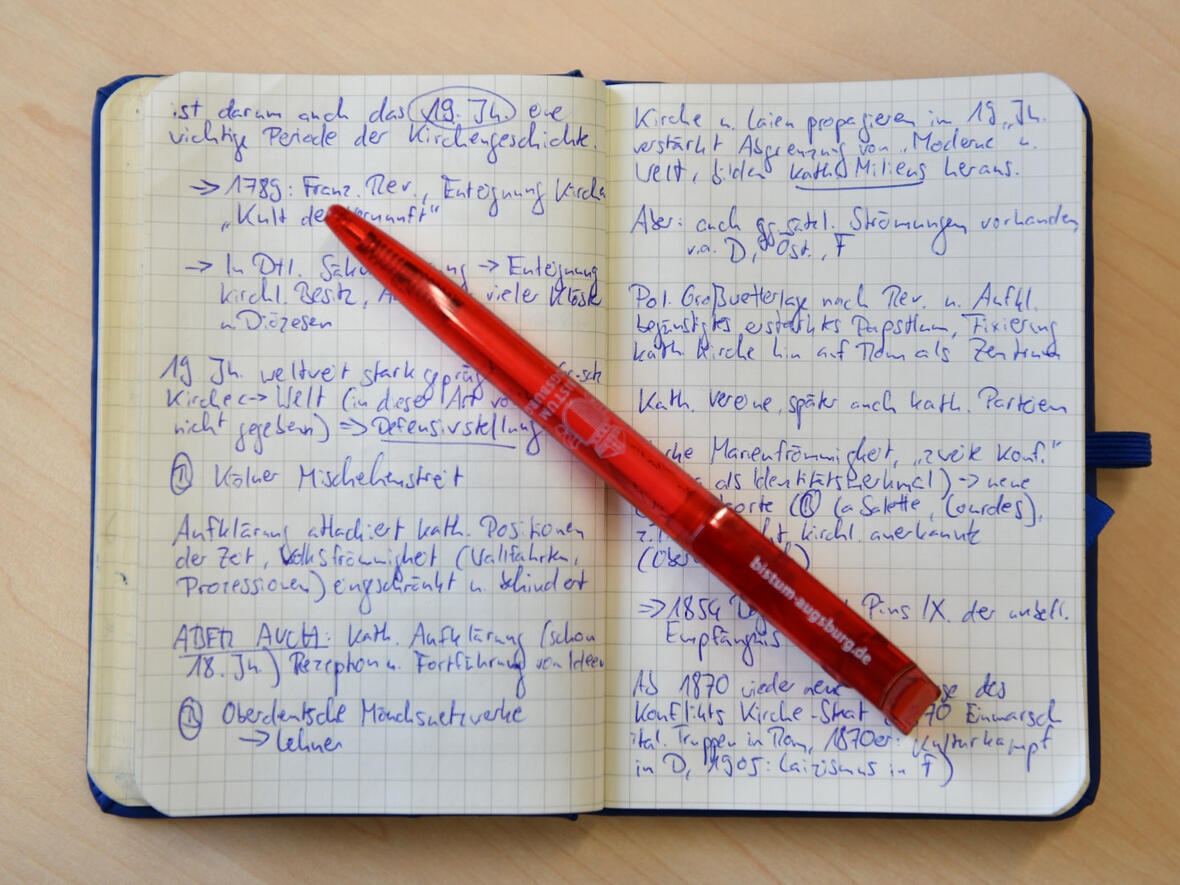 ist darum auch das 19. Jh. eine
wichtige Periode der Kirchengeschichte.
→ 1789: Franz. Rev., Enteignung Kirche
„Kult der Vernunft“
→ In Dtl. → Enteignung
kirchl. Besitz, vieler Klöster
u. Diözesen
19. Jh. weltweit stark
Kirche <-> Welt (in dieser Art
nicht gegeben) => Defensivstellung
Kölner Mischehenstreit
Aufklärung attackiert kath. Positionen
der Zeit, Volksfrömmigkeit (Wallfahrten,
Prozessionen) eingschränkt u. behindert
ABER AUCH: Kath. Aufklärung (schon
18. Jh.) Rezeption u. Fortführung von Ideen
Oberdeutsche Mönchsnetzwerke
→ Lehner
Kirche u. Laien propagieren im 19. Jh.
verstärkt Abgrenzung von „Moderne“ u.
Welt, bilden kath. Milieus heraus.
Aber: auch Strömungen vorhanden,
v.a. D, Öst., F
Pol. Großwetterlage nach Rev. u. Aufkl.
begünstigt erstarktes Papsttum, Fixierung
kath. Kirche hin auf Rom als Zentrum
Kath. Vereine, später auch kath. Parteien
Marienfrömmigkeit, „zweite Konf.“
als Identitätsmerkmal) → neue
(La Salette, Lourdes),
kirchl. anerkannt
=> 1854 Pius IX. der unbefl.
Empfängnis
Ab 1870 wieder neue des
Konflikts Kirche-Staat Einmarsch
ital. Truppen in Rom, 1870er: Kulturkampf
in D, 1905: Laizismus in F)
BISTUM
AUGSBURG
bistum-augsburg.de